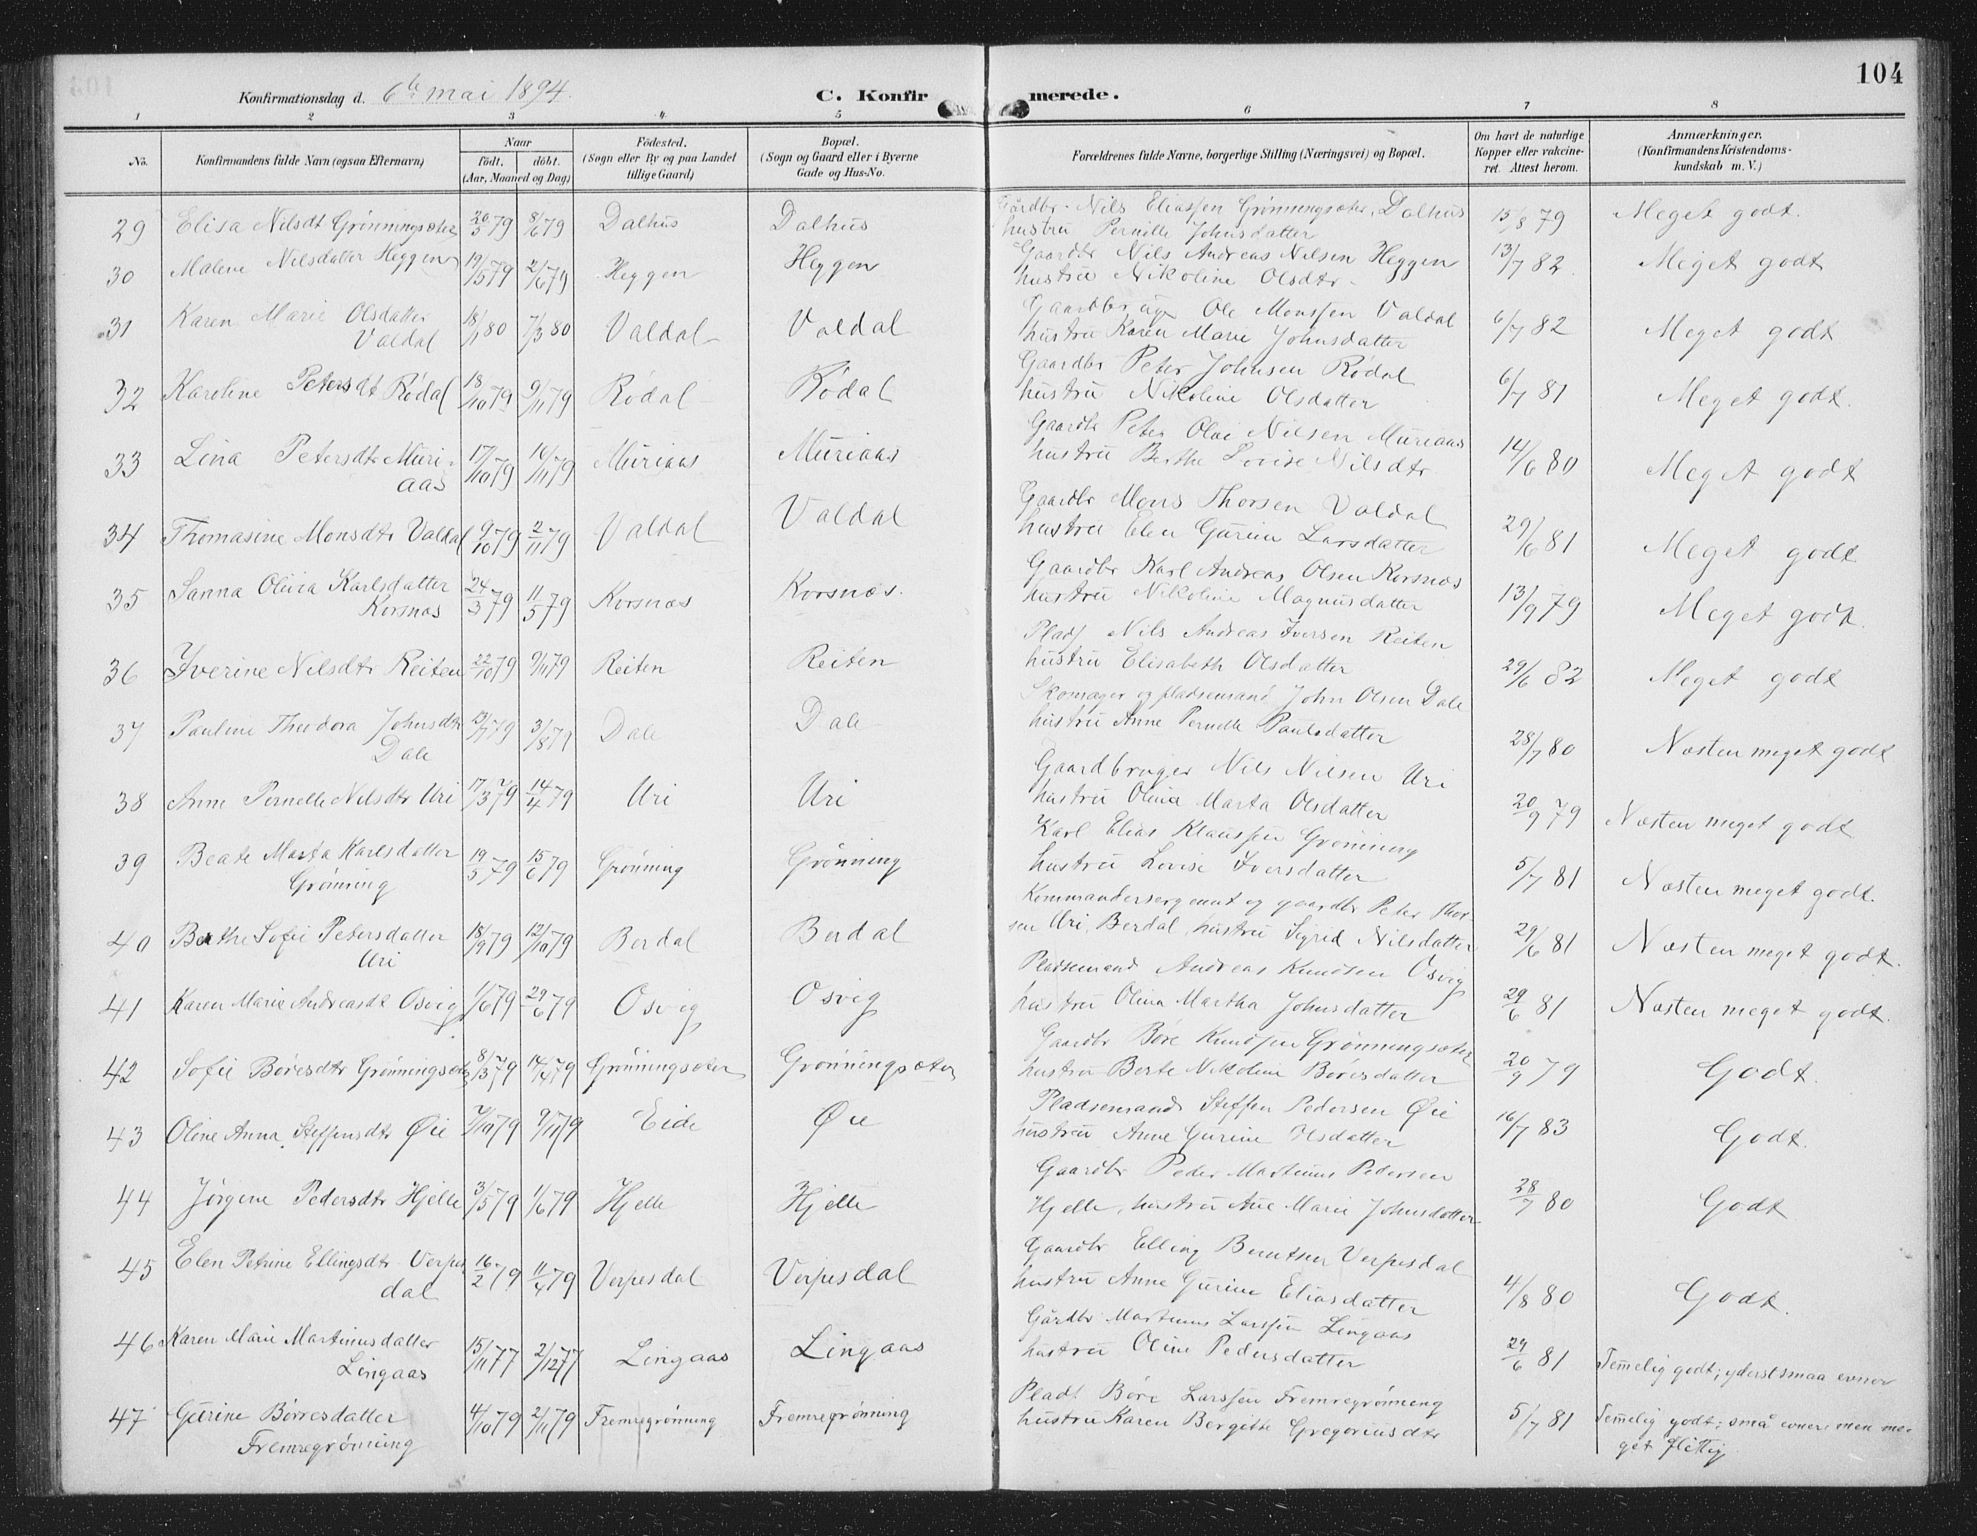 104
Konfirmationsdag d. 6te mai 1894.
C. Konfirmerede.
1 2 3 4. 5 6 7 8
No. Konfirmandens fulde Navn (ogsaa Efternavn) Naar født. døbt. (Aar, Maaned og Dag) Fødested. (Sogn eller By og paa Landet tillige Gaard) Bopæl. (Sogn og Gaard eller i Byerne Gade og Hus-No. Forældrenes fulde Navne, borgerlige Stilling (Næringsvei) og Bopæl. Om havt de naturlige Kopper eller vakcineret. Attest herom. Anmærkninger. (Konfirmandens Kristendomskundskab m. V.)
29 Elisa Nilsdt Grønningsæter 20/5 79 8/6 79 Dalhus Dalhus Gårdbr. Nils Eliassen Grønningsæter, Dalhus 15/8 79 Meget godt.
hustru Pernille Johnsdatter
30 Malene Nilsdatter Heggen 19/5 79 2/6 79 Heggen Heggen Gaardbr Nils Andreas Nilsen Heggen 13/7 82. Meget godt
hustru Nikoline Olsdtr.
31 Karen Marie Olsdatter 18/1 80 7/3 80 Valdal Valdal Gaardbruger Ole Monssen Valdal 6/7 82 Meget godt
Valdal hustru Karen Marie Johnsdatter
32 Karoline Petersdt Rødal 18/10 79 9/11 79 Rødal Rødal Gaardbr Peter Johnsen Rødal 6/7 81 Meget godt.
hustru Nikoline Olsdatter
33 Lina Petersdtr Muri- 17/10 79 16/11 79 Muriaas Muriaas Gaardbr Peter Olai Nilsen Muriaas 14/6 80 Meget godt
aas hustru Berthe Lovise Nilsdtr
34 Thomasine Monsdtr Valdal 9/10 79 2/11 79 Valdal Valdal Gaardbr Mons Thorsen Valdal 29/6 81 Meget godt
hustru Elen Gurine Larsdatter
35 Sanna Olivia Karlsdatter 24/3 79 11/5 79 Korsnæs Korsnæs. Gaardbr Karl Andreas Olsen Korsnæs 13/9 79 Meget godt.
Korsnæs hustru Nikoline Magnusdatter
36 Iverine Nilsdtr Reiten 22/10 79 9/11 79 Reiten Reiten Plads Nils Andreas Iversen Reiten 29/6 82 Meget godt
hustru Elisabeth Olsdatter
37 Pauline Theodora Johnsdtr 13/7 79 3/8 79 Dale Dale Skomager og pladsemand John Olsen Dale 28/7 80 Næsten meget godt
Dale hustru Anne Pernelle Paulsdatter
38 Anne Pernelle Nilsdtr Uri 17/3 79 14/4 79 Uri Uri Gaardbruger Nils Nilsen Uri 20/9 79 Næsten meget godt
hustru Olina Marta Olsdatter
39 Beate Marta Karlsdatter 19/5 79 15/6 79 Grønning Grønning Karl Elias Klaussen Grønning 5/7 81 Næsten meget godt.
Grønning hustru Lovise Iversdatter
40 Berthe Sofie Petersdatter 18/9 79 12/10 79 Berdal Berdal Kommandersergeant og gaardbr Peter Thor- 29/6 81 Næsten meget godt.
Uri sen Uri, Berdal, hustru Sigrid Nilsdatter
41 Karen Marie Andreasdt Osvig 1/6 79 29/6 79 Osvig Osvig Pladsemand Andreas Knudsen Osvig 29/6 81 Næsten meget godt.
hustru Olina Martha Johnsdatter
42 Sofie Børesdtr Grønningsæter 8/3 79 14/4 79 Grønningsæter Grønningsæter Gaardbr Børe Knudsen Grønningsæter 20/9 79 Godt.
hustru Berte Nikoline Børesdatter
43 Oline Anna Steffensdtr Øie 7/10 79 9/11 79 Eide Øie Pladsemand Steffen Pedersen Øie 16/7 83 Godt.
hustru Anne Gurine Olsdatter
44 Jørgine Pedersdtr Hjelle 3/5 79 1/6 79 Hjelle Hjelle Gaardbr Peder Martinus Pedersen 28/7 80 Godt
Hjelle, hustru Ane Marie Johnsdatter
45 Elen Petrine Ellingsdtr Verpes 16/2 79 11/4 79 Verpesdal Verpesdal Gaardbr Elling Berntsen Verpesdal 4/8 80 Godt.
dal hustru Anne Gurine Eliasdatter
46 Karen Marie Martinusdatter 15/11 77 2/12 77 Lingaas Lingaas Gårdbr Martinus Larssen Lingaas 29/6 81 Temelig godt; yderst smaa evner
Lingaas hustru Oline Pedersdatter
47 Gurine Børresdatter 4/10 79 2/11 79 Fremregrønning Fremregrønning Plads Børe Larssen Fremregrønning 5/7 81 Temelig godt; små evner men me-
Fremregrønning hustru Karen Bergitte Gregoriusdtr get flittig.